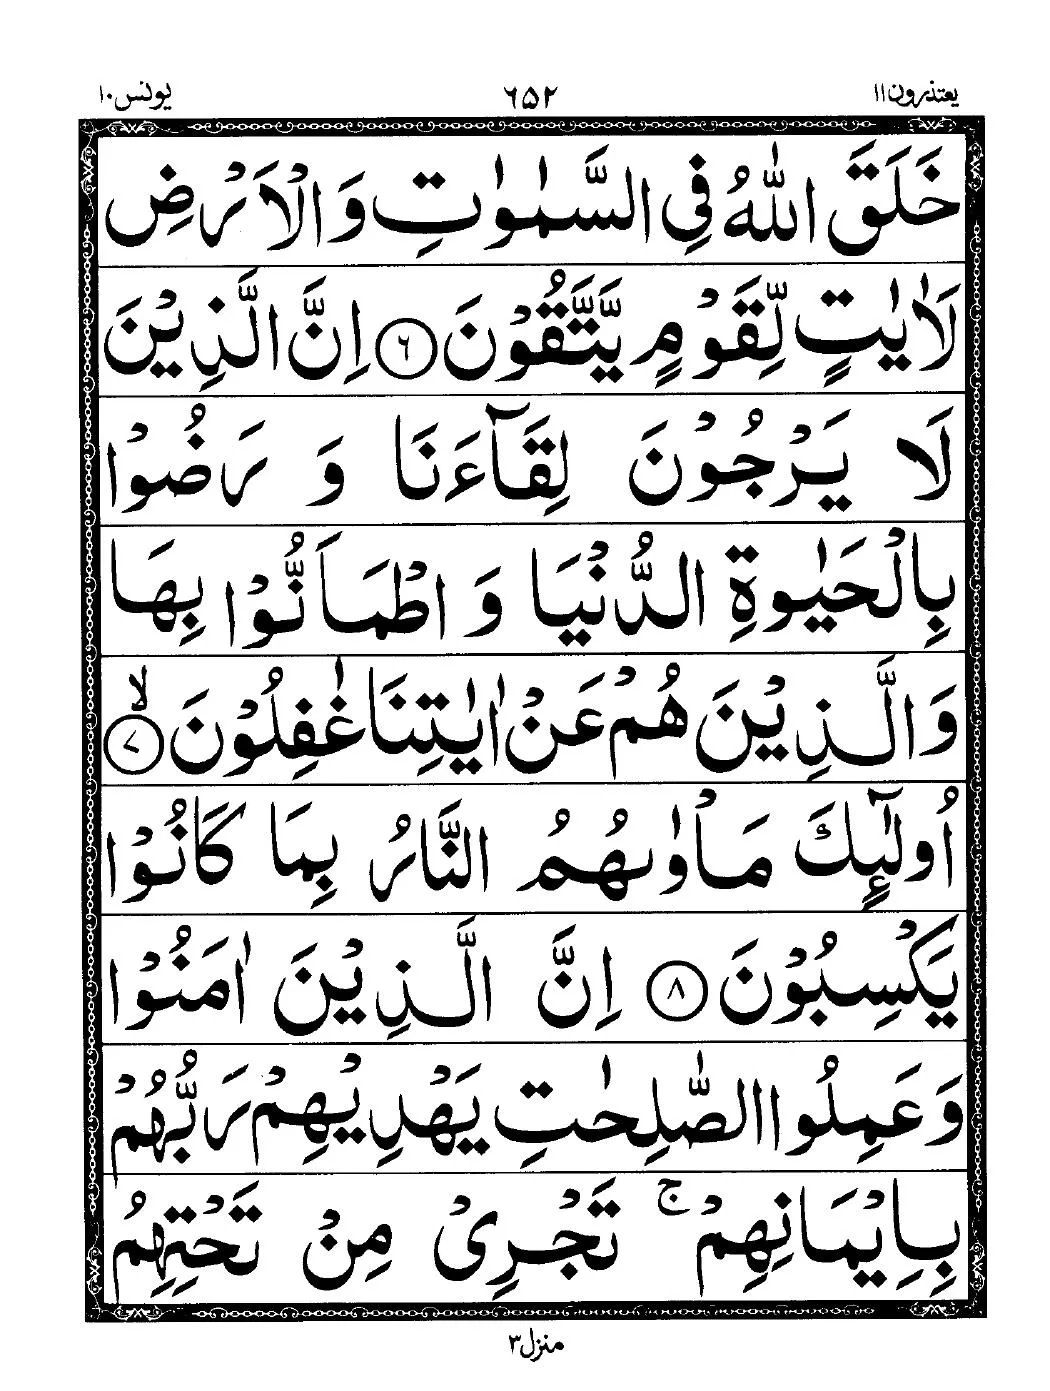 یعتذرون۱۱
۶۵۲
یونس۱۰
خَلَقَ اللّٰهُ فِی السَّمٰوٰتِ وَالْاَرْضِ
لَاٰیٰتٍ لِّقَوْمٍ یَّتَّقُوْنَ ۶ اِنَّ الَّذِیْنَ
لَا یَرْجُوْنَ لِقَآءَنَا وَ رَضُوْا
بِالْحَیٰوةِ الدُّنْیَا وَ اطْمَاَنُّوْا بِهَا
وَالَّذِیْنَ هُمْ عَنْ اٰیٰتِنَا غٰفِلُوْنَ ۷ لا
اُولٰٓئِكَ مَاْوٰىهُمُ النَّارُ بِمَا كَانُوْا
یَكْسِبُوْنَ ۸ اِنَّ الَّذِیْنَ اٰمَنُوْا
وَ عَمِلُوا الصّٰلِحٰتِ یَهْدِیْهِمْ رَبُّهُمْ
بِاِیْمَانِهِمْ ۚ تَجْرِیْ مِنْ تَحْتِهِمُ
منزل۳